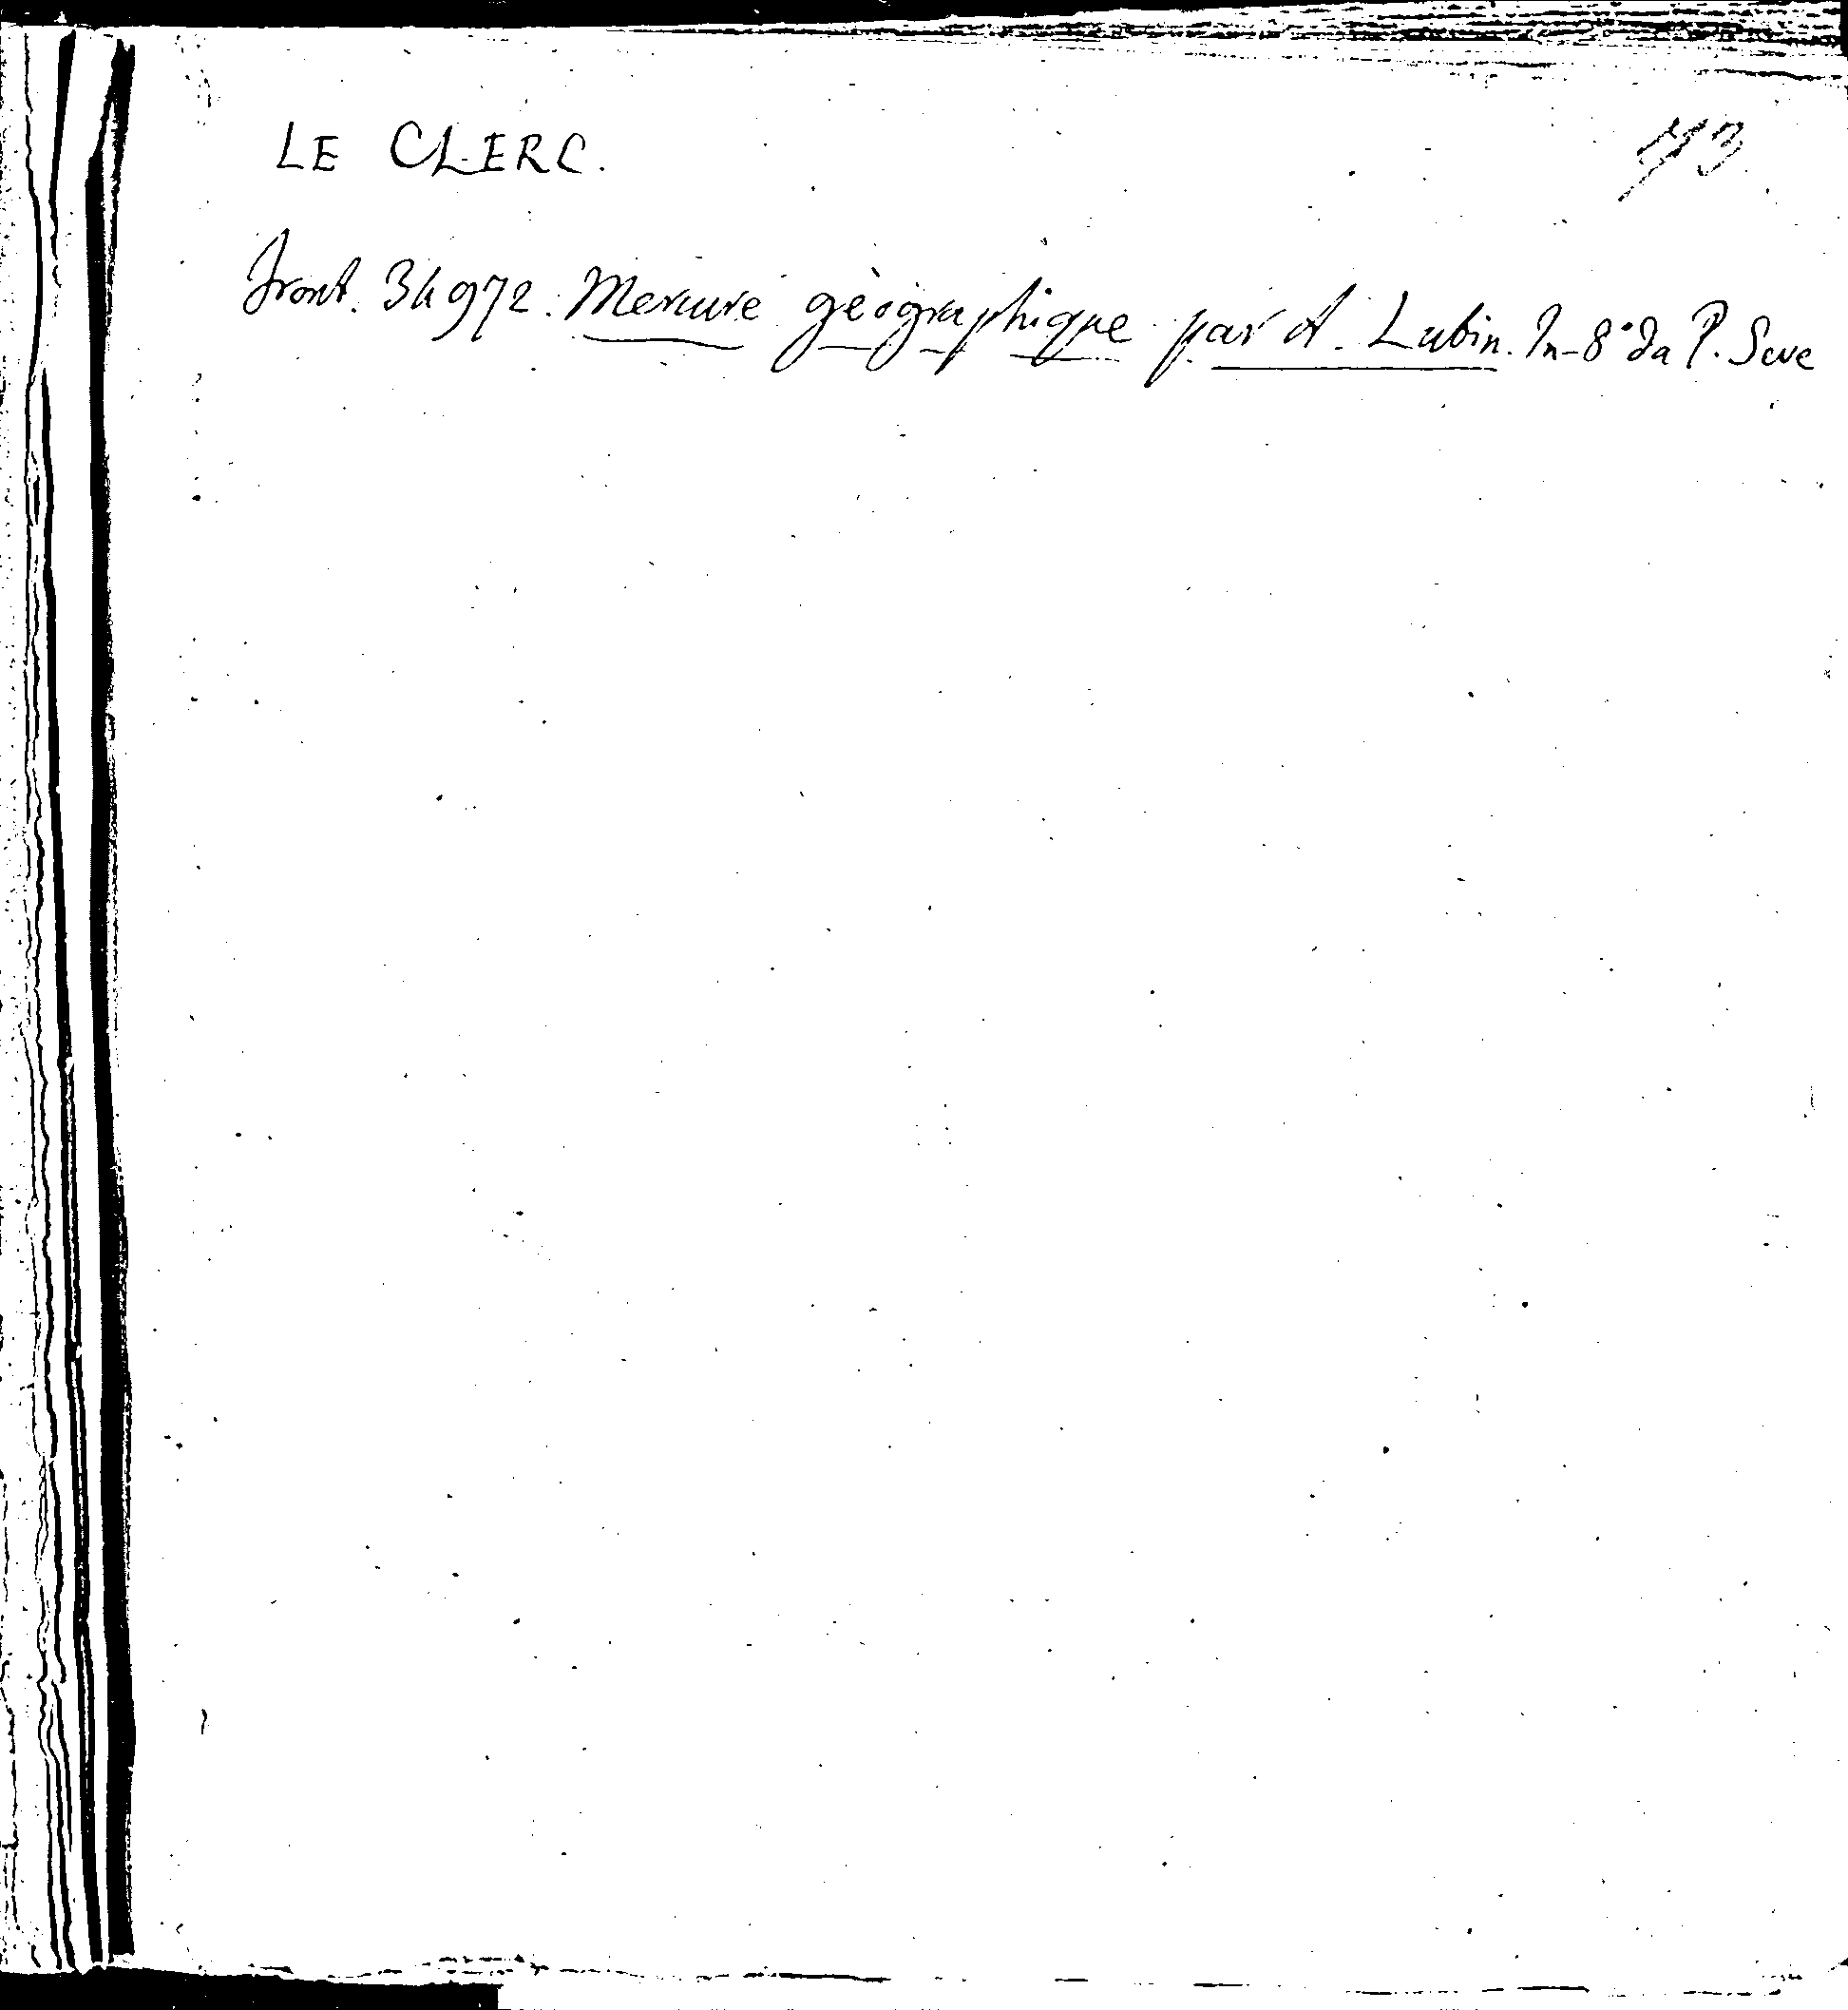 LE CLERC.
73
Front. 34972. Mercure géographique par A. Lubin. In-8° da P. Seve